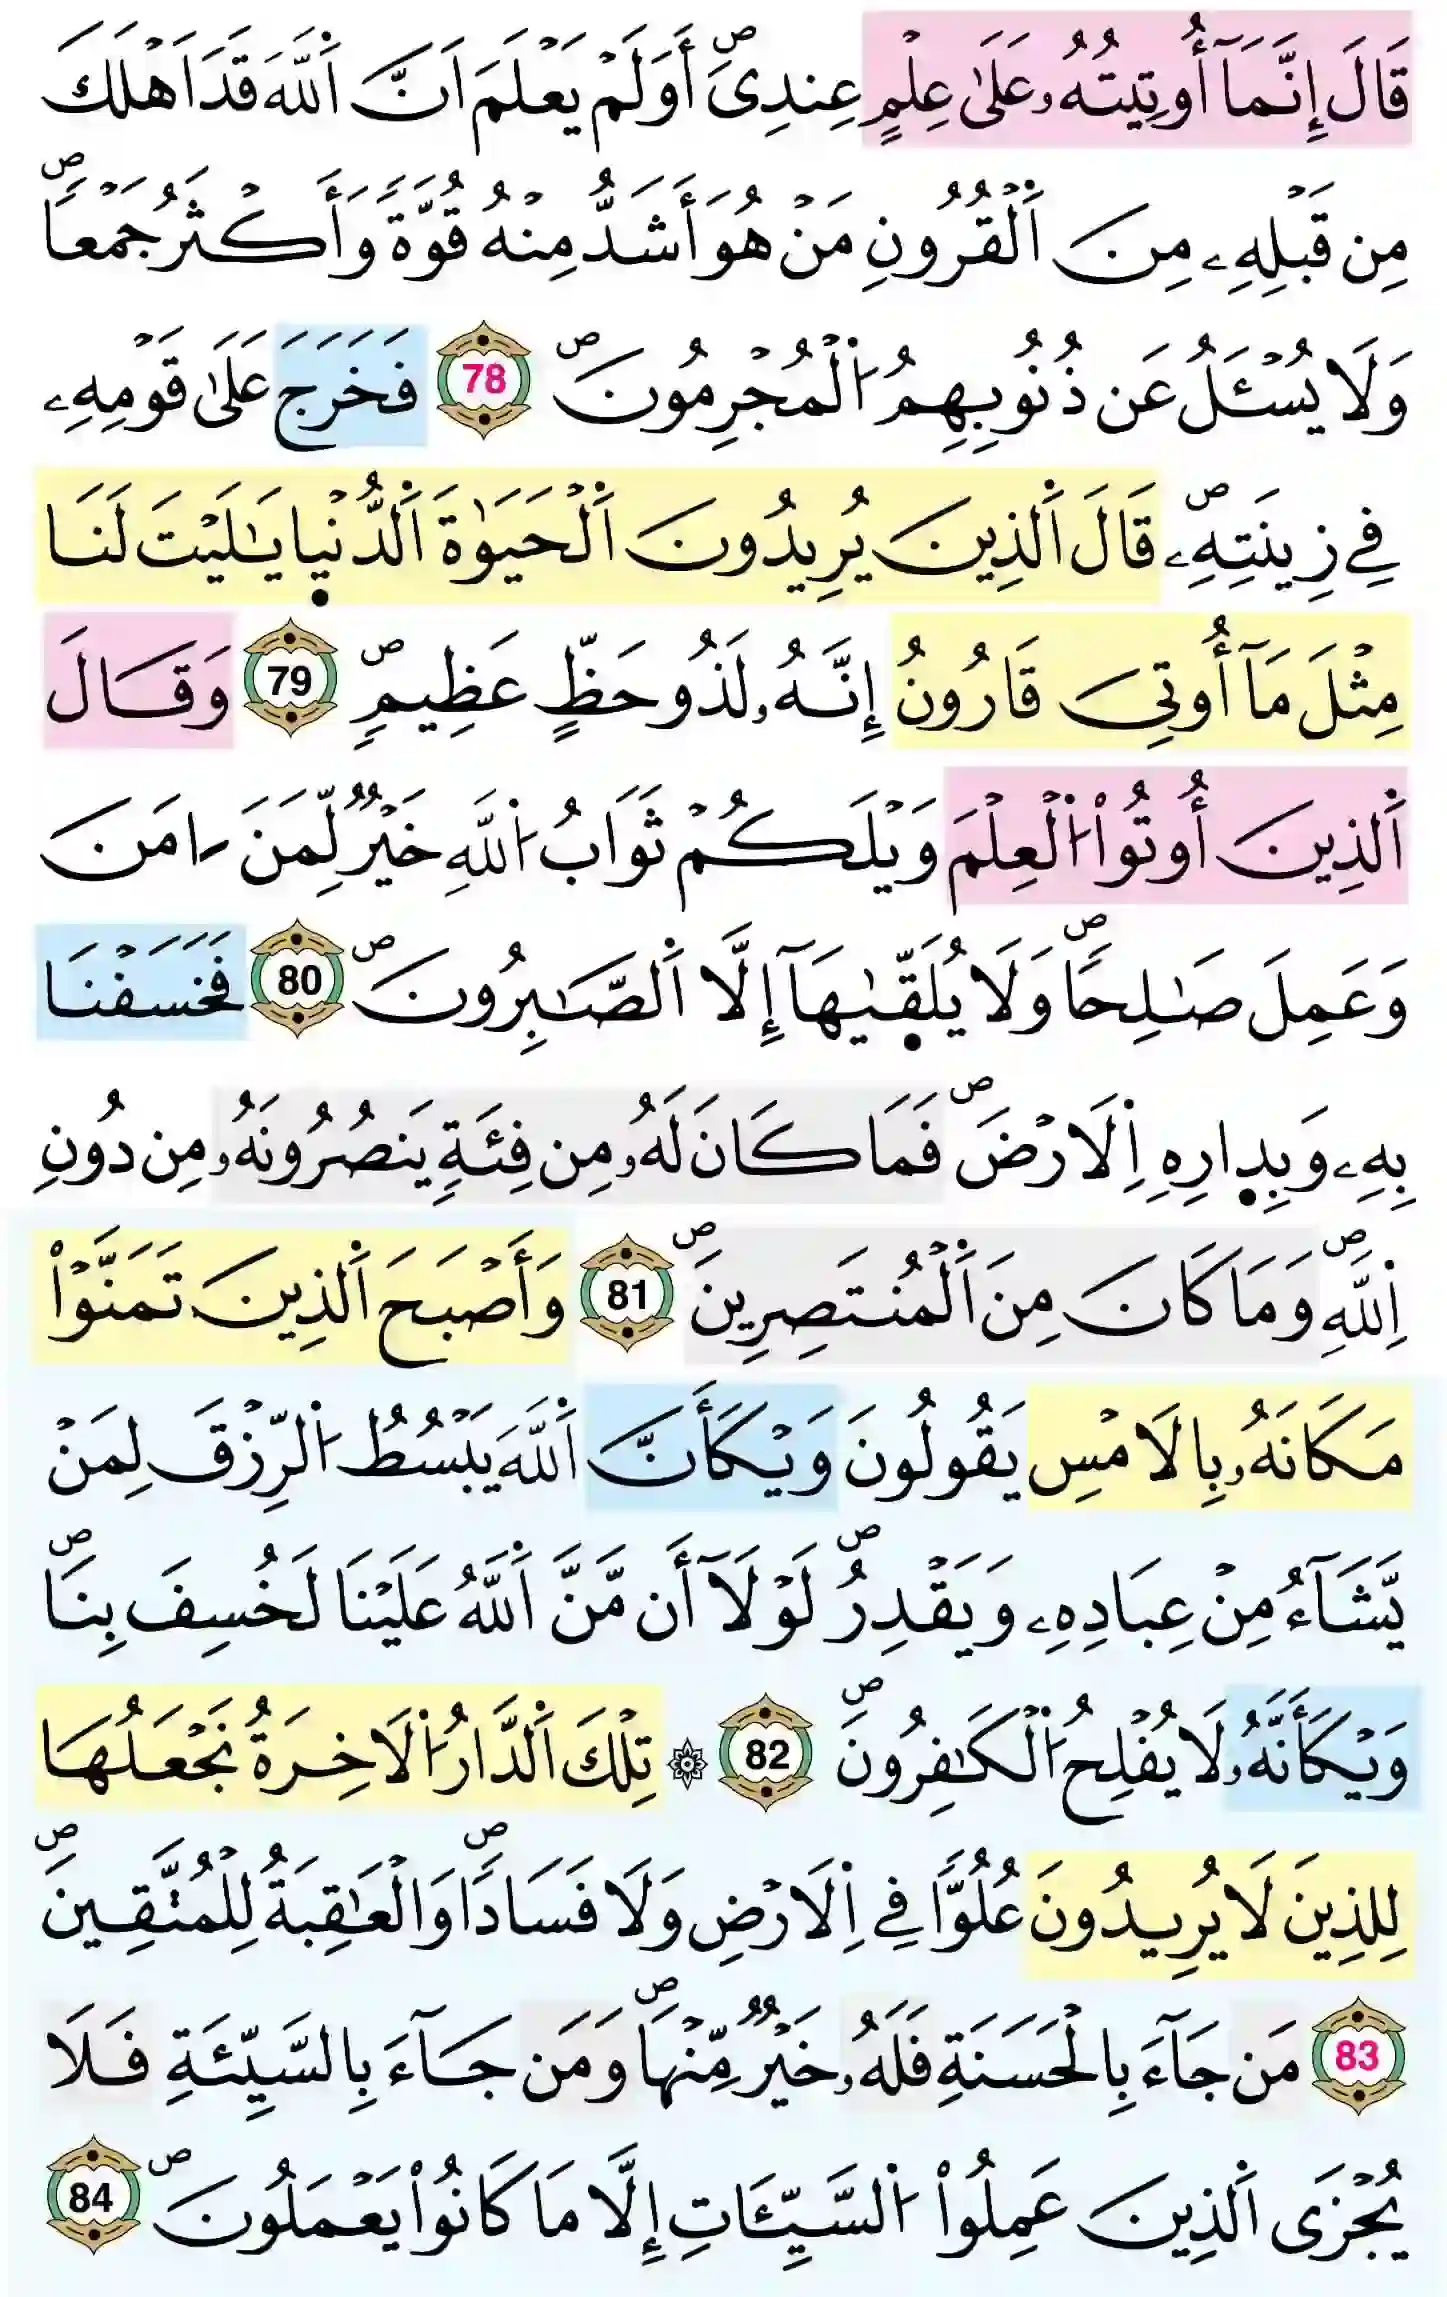 قَالَ إِنَّمَآ أُوتِيتُهُۥ عَلَىٰ عِلْمٍ عِندِيَۖ أَوَلَمْ يَعْلَمَ اَنَّ اَ۬للَّهَ قَدَ اَهْلَكَ
مِن قَبْلِهِۦ مِنَ اَ۬لْقُرُونِ مَنْ هُوَ أَشَدُّ مِنْهُ قُوَّةٗ وَأَكْثَرُ جَمْعاٗۖ
وَلَا يُسْـَٔلُ عَن ذُنُوبِهِمُ اُ۬لْمُجْرِمُونَۖ 78 فَخَرَجَ عَلَىٰ قَوْمِهِۦ
فِي زِينَتِهِۦۖ قَالَ اَ۬لذِينَ يُرِيدُونَ اَ۬لْحَيَوٰةَ اَ۬لدُّنْيٜا يَٰلَيْتَ لَنَا
مِثْلَ مَآ أُوتِيَ قَارُونُ إِنَّهُۥ لَذُو حَظٍّ عَظِيمٖۖ 79 وَقَالَ
اَ۬لذِينَ أُوتُواْ اُ۬لْعِلْمَ وَيْلَكُمْ ثَوَابُ اُ۬للَّهِ خَيْرٞ لِّمَنَ اٰمَنَ
وَعَمِلَ صَٰلِحاٗۖ وَلَا يُلَقّٜىٰهَآ إِلَّا اَ۬لصَّٰبِرُونَۖ 80 فَخَسَفْنَا
بِهِۦ وَبِدٜارِهِ اِ۬لَارْضَۖ فَمَا كَانَ لَهُۥ مِن فِئَةٖ يَنصُرُونَهُۥ مِن دُونِ
اِ۬للَّهِۖ وَمَا كَانَ مِنَ اَ۬لْمُنتَصِرِينَۖ 81 وَأَصْبَحَ اَ۬لذِينَ تَمَنَّوْاْ
مَكَانَهُۥ بِالَامْسِ يَقُولُونَ وَيْكَأَنَّ اَ۬للَّهَ يَبْسُطُ اُ۬لرِّزْقَ لِمَنْ
يَّشَآءُ مِنْ عِبَادِهِۦ وَيَقْدِرُۖ لَوْلَآ أَن مَّنَّ اَ۬للَّهُ عَلَيْنَا لَخُسِفَ بِنَاۖ
وَيْكَأَنَّهُۥ لَا يُفْلِحُ اُ۬لْكَٰفِرُونَۖ 82 ۞ تِلْكَ اَ۬لدَّارُ اُ۬لَاخِرَةُ نَجْعَلُهَا
لِلذِينَ لَا يُرِيدُونَ عُلُوّاٗ فِي اِ۬لَارْضِ وَلَا فَسَاداٗۖ وَالْعَٰقِبَةُ لِلْمُتَّقِينَۖ
83 مَن جَآءَ بِالْحَسَنَةِ فَلَهُۥ خَيْرٞ مِّنْهَاۖ وَمَن جَآءَ بِالسَّيِّئَةِ فَلَا
يُجْزَى اَ۬لذِينَ عَمِلُواْ اُ۬لسَّيِّـَٔاتِ إِلَّا مَا كَانُواْ يَعْمَلُونَۖ 84